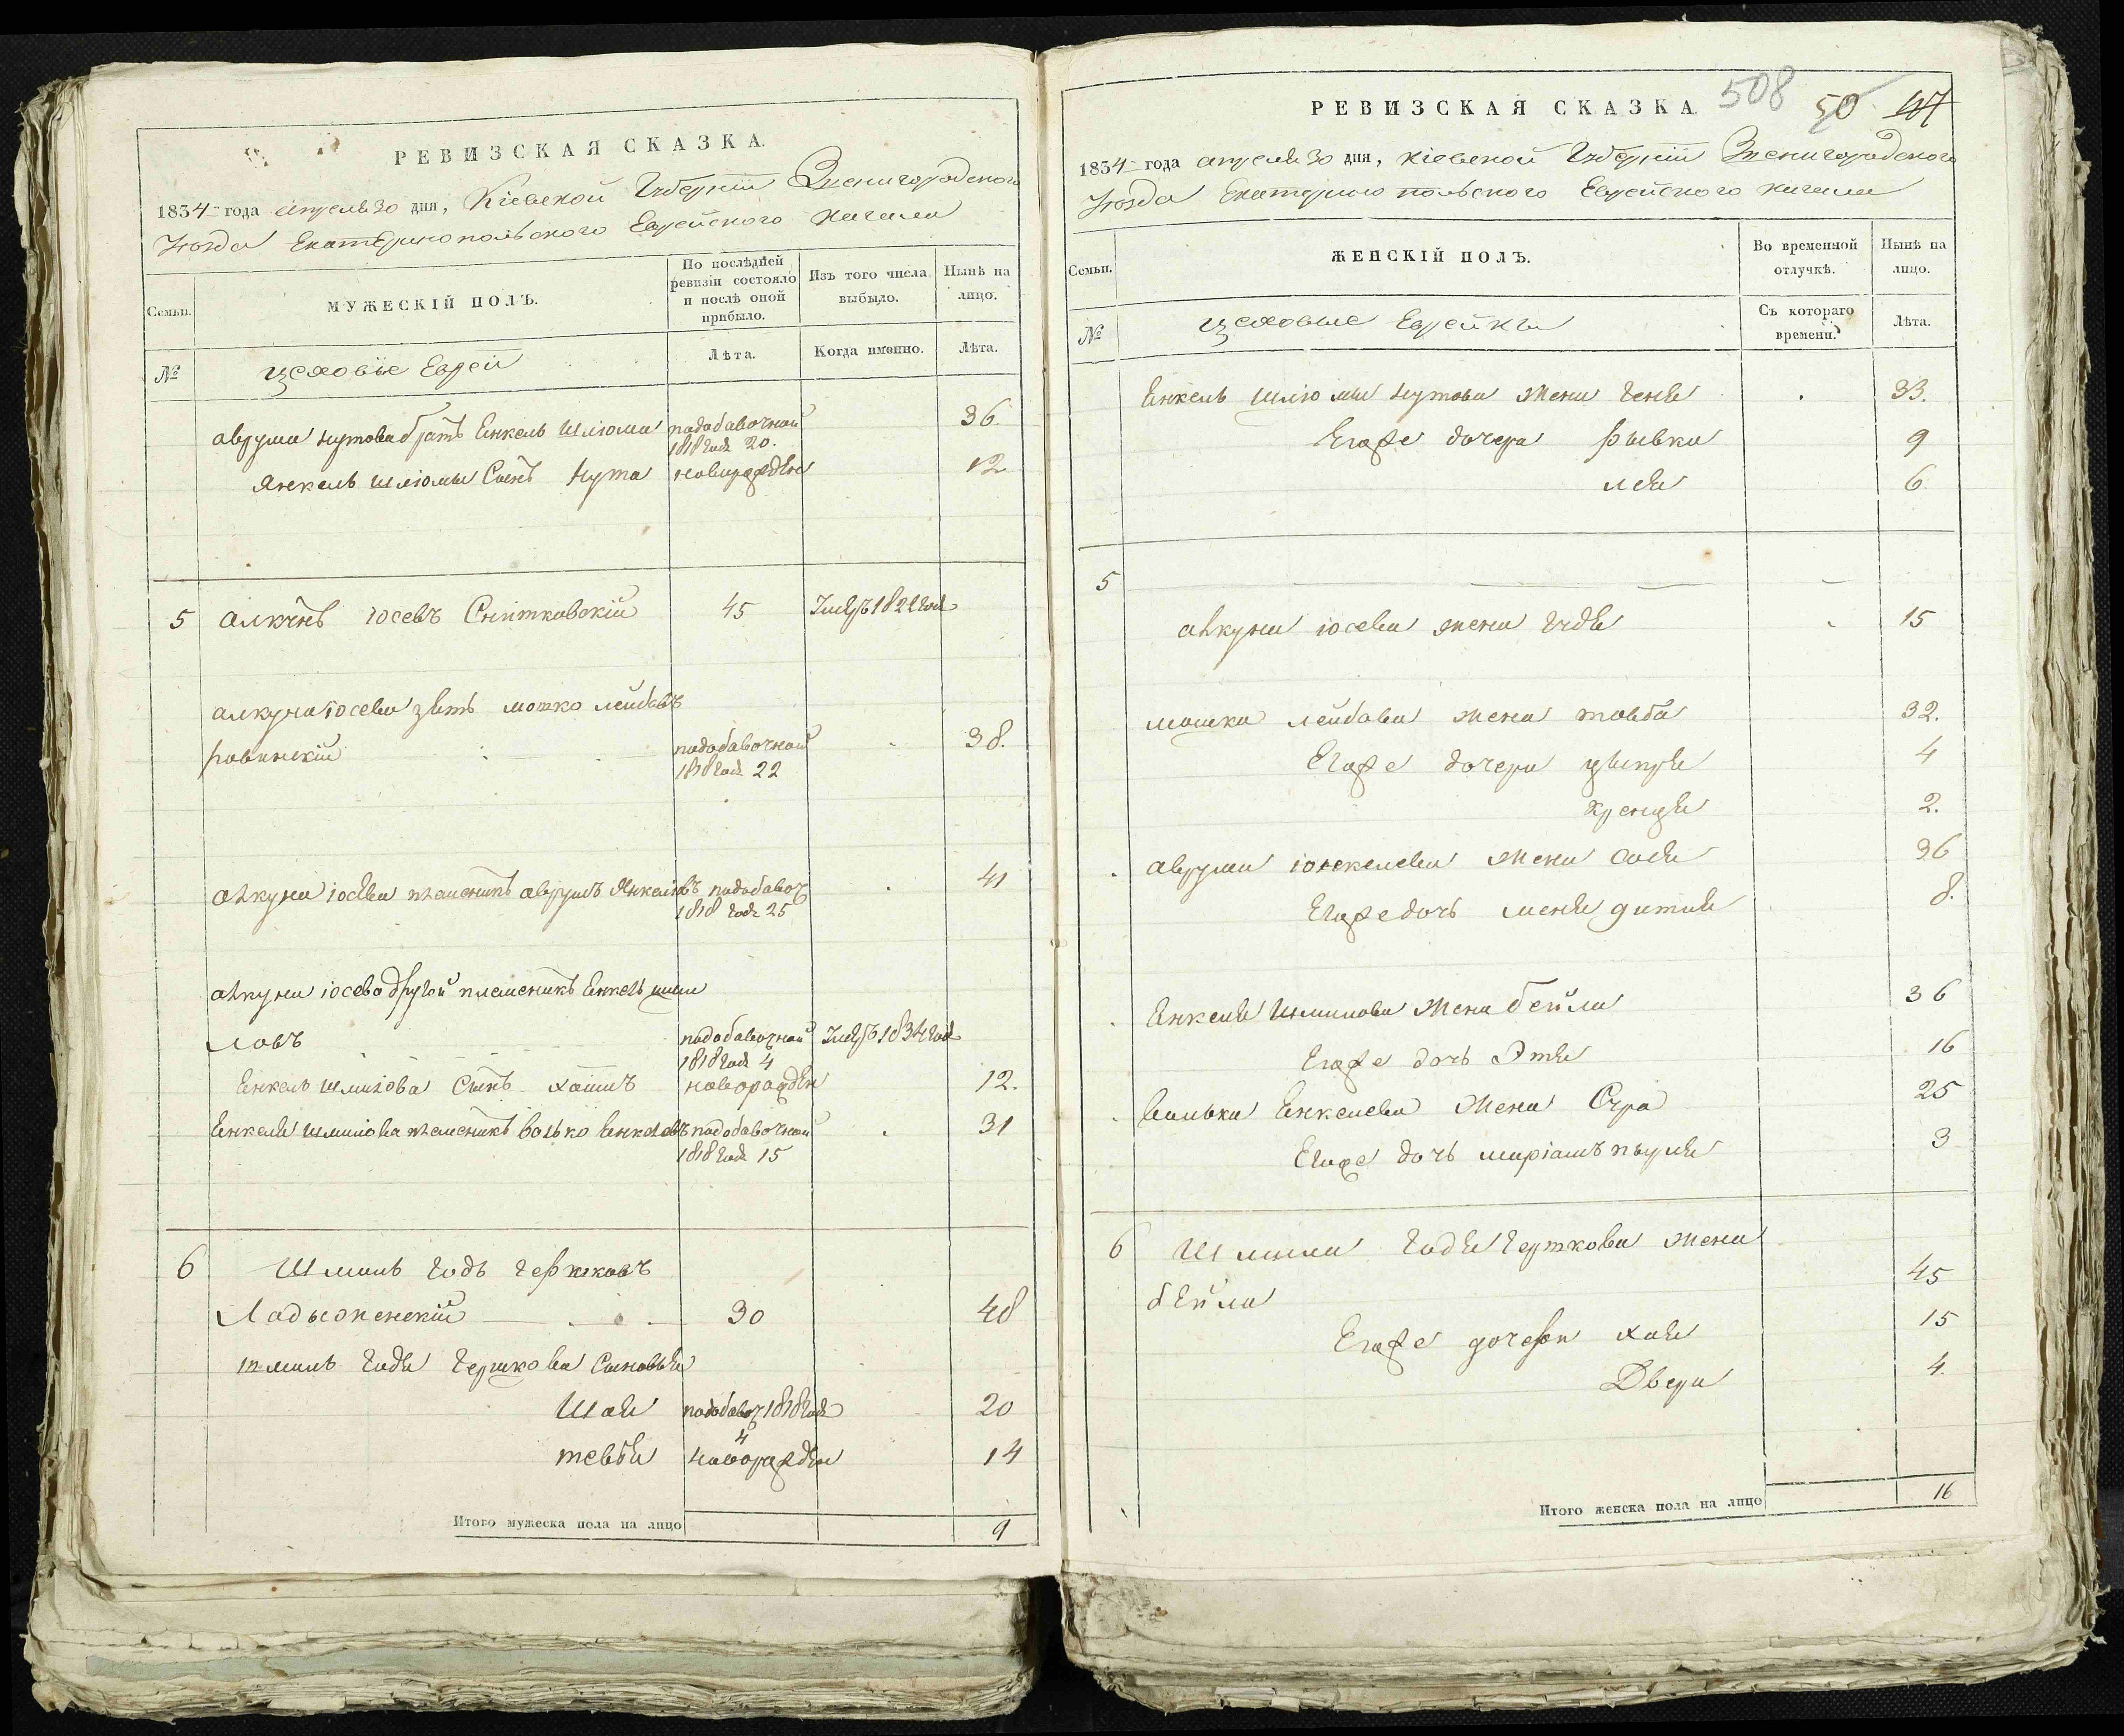 РЕВИЗСКАЯ СКАЗКА.
1834 года апреля 30 дня, Кіевской Губерніи Звенигородского
Уезда Екатеринопольского Еврейского кагала
Семьи.
МУЖЕСКІЙ ПОЛЪ.
По послѣдней ревизіи состояло и послѣ оной прибыло.
Изъ того числа выбыло.
Нынѣ на лицо.
№
цеховые Евреи
Лѣта.
Когда именно.
Лѣта.
аврума нутова братъ Енкель Шлюма подобавочной 1818 года 20. 36.
Янкель шлюмы Сынъ Нута новорожден 12
5 алкунъ юсевъ Снитковскій 45 1822 года
алкуна юсева зять мошко лейбовъ
ровинскій подобавочной 1818 года 22 38.
алкуна юсева племеникъ аврумъ Янкелевъ подобавоч 1818 года 25 41
алкуна юсева другой племеникъ Енкель шми
ловъ подобавочной 1818 года 4 1834 года
Енкель шмилова Сынъ хаимъ новорожден 12.
Енкеля шмилова племеникъ волько Енкелевъ подобавочной 1818 года 15 31
6 Шмиль годь гершковъ
Ладыженскій 30 48
шмиль годя гершкова Сыновья
Шая подобавоч 1818 года 4 20
тевья новорожден 14
Итого мужеска пола на лицо 9
508 50
РЕВИЗСКАЯ СКАЗКА.
1834 года апреля 30 дня, кіевской Губерніи Звенигородского
Уезда Екатеринопольского Еврейского кагала
Семьи.
ЖЕНСКІЙ ПОЛЪ.
Во временной отлучкѣ.
Нынѣ на лицо.
№
цеховые Еврейки
Съ котораго времени.
Лѣта.
Енкель шлюмы нутова жена геня 33.
Егоже дочера рывка 9
лея 6
5
алкуна юсева жена гудя 15
мошка лейбова жена товба 32.
Егоже дочера ципра 4
хренця 2.
аврума юнкелева жена сося 36
Егоже дочь меня дитля 8.
Енкеля шмилова жена бейла 36
Егоже дочь Этя 16
волька Енкелева жена Сура 25
Егоже дочь миріамъ перля 3
6 Шмиля годя гершкова жена
бейла 45
Егоже дочери хая 15
Двера 4.
Итого женска пола на лицо 16